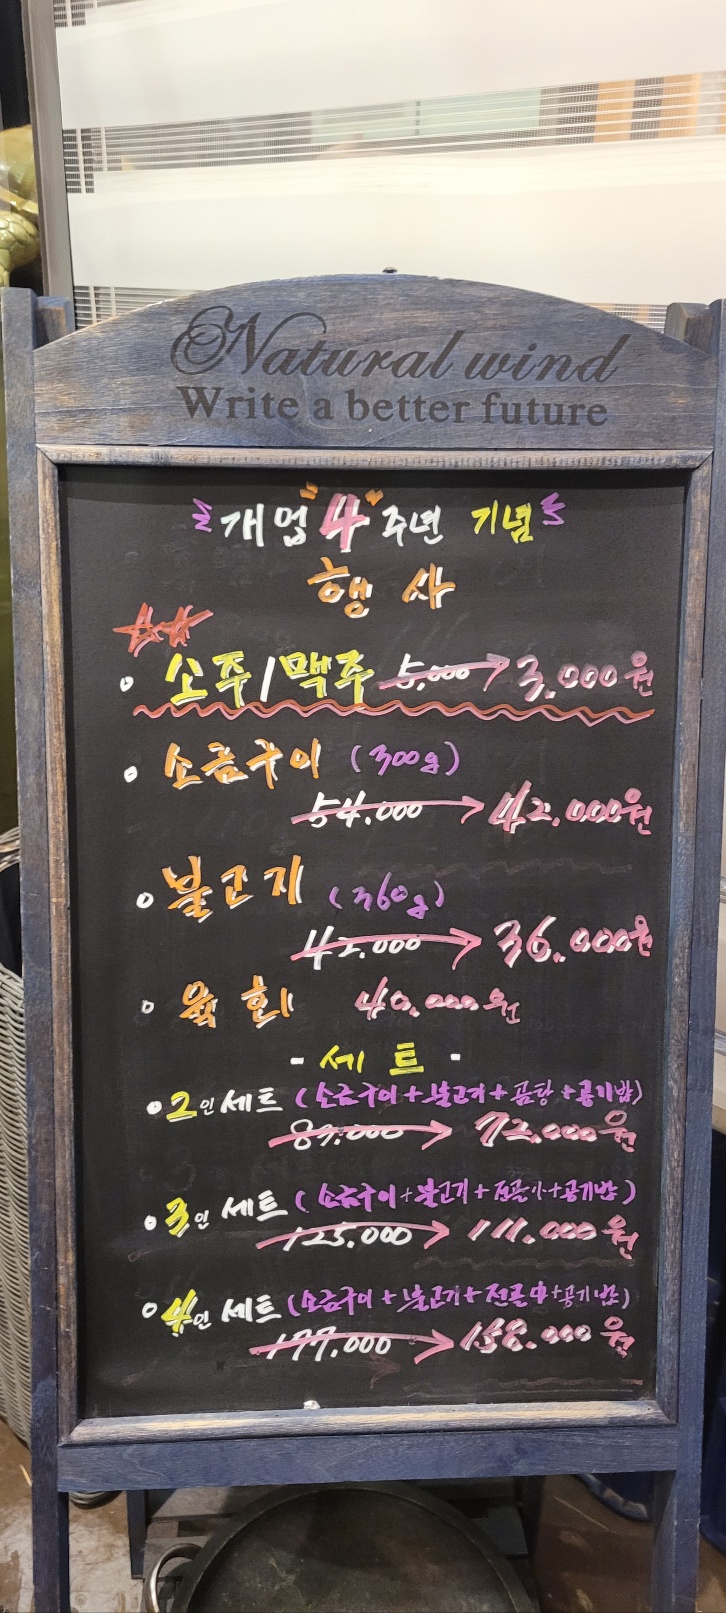 Natural wind
Write a better future
개업 "4" 주년 기념
행사
소주/맥주 5,000 → 3,000원
소금구이 (300g)
54,000 → 42,000원
불고기 (360g)
42,000 → 36,000원
육회 40,000원
- 세트 -
2인 세트 (소금구이+불고기+곰탕+공기밥)
→ 72,000원
3인 세트 (소금구이+불고기+전골小+공기밥)
125,000 → 111,000원
4인 세트 (소금구이+불고기+전골中+공기밥)
177,000 → 158,000원